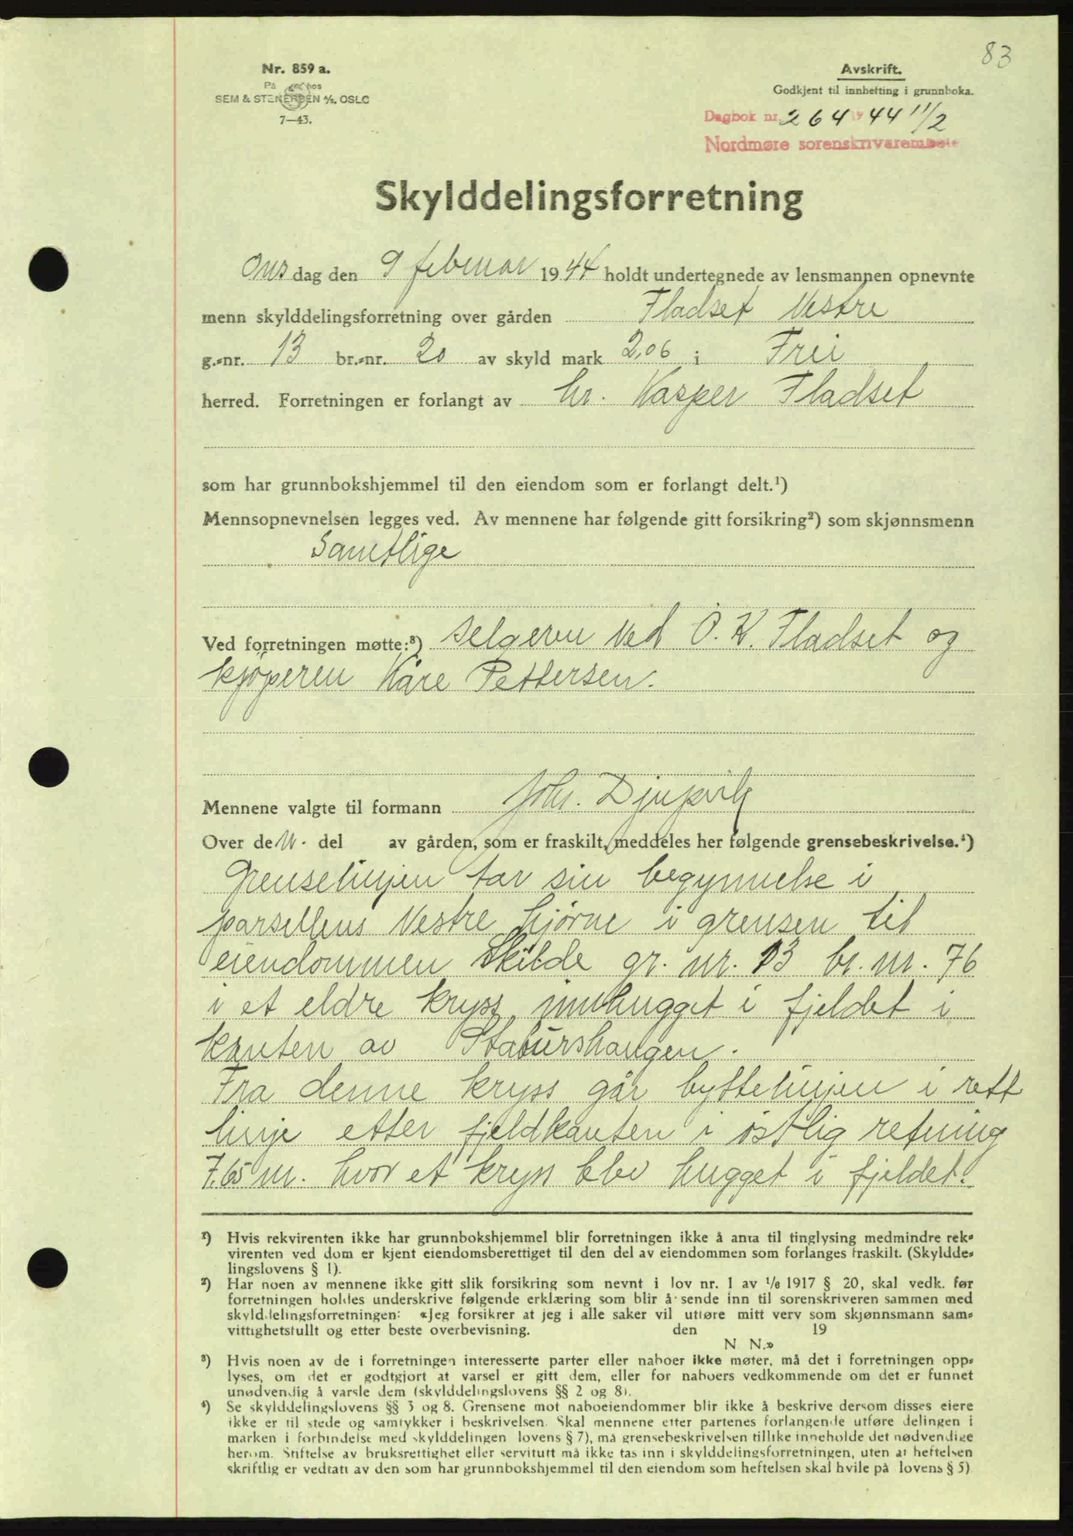 83
Nr. 859 a.
På hos
SEM & STENERSEN A/S, OSLO
7—43.
Avskrift.
Godkjent til innhefting i grunnboka.
Dagbok nr. 264 19 44 11/2
Nordmøre sorenskriverembete
Skylddelingsforretning
Ons dag den 9 februar 19 44 holdt undertegnede av lensmannen opnevnte
menn skylddelingsforretning over gården Fladset Vestre
g.-nr. 13 br.-nr. 20 av skyld mark 2,06 i Frei
herred. Forretningen er forlangt av hr. Kasper Fladset
som har grunnbokshjemmel til den eiendom som er forlangt delt.¹)
Mennsopnevnelsen legges ved. Av mennene har følgende gitt forsikring²) som skjønnsmenn
Samtlige
Ved forretningen møtte:³) selgeren ved O. K. Fladset og
kjøperen Kåre Pettersen.
Mennene valgte til formann Joh. Djupvik
Over den del av gården, som er fraskilt, meddeles her følgende grensebeskrivelse.⁴)
Grenselinjen tar sin begynnelse i
parsellens Vestre hjørne i grensen til
eiendommen Skilde gr. nr. 13 br. nr. 76
i et eldre kryss innhugget i fjeldet i
kanten av Staburshaugen.
Fra denne kryss går byttelinjen i rett
linje etter fjeldkanten i østlig retning
7,65 m. hvor et kryss blev hugget i fjeldet.
¹) Hvis rekvirenten ikke har grunnbokshjemmel blir forretningen ikke å anta til tinglysing medmindre rek-
virenten ved dom er kjent eiendomsberettiget til den del av eiendommen som forlanges fraskilt. (Skyldde-
lingslovens § 1).
²) Har noen av mennene ikke gitt slik forsikring som nevnt i lov nr. 1 av 1/6 1917 § 20, skal vedk. før
forretningen holdes underskrive følgende erklæring som blir å sende inn til sorenskriveren sammen med
skylddelingsforretningen: «Jeg forsikrer at jeg i alle saker vil utføre mitt verv som skjønnsmann sam-
vittighetsfullt og etter beste overbevisning. den 19
N. N.»
³) Hvis noen av de i forretningen interesserte parter eller naboer ikke møter, må det i forretningen opp-
lyses, om det er godtgjort at varsel er gitt dem, eller for naboers vedkommende om det er funnet
unødvendig å varsle dem (skylddelingslovens §§ 2 og 8).
⁴) Se skylddelingslovens §§ 3 og 8. Grensene mot naboeiendommer blir ikke å beskrive dersom disses eiere
ikke er til stede og samtykker i beskrivelsen. Skal mennene etter partenes forlangende utføre delingen i
marken i forbindelse med skylddelingen (lovens § 7), må grensebeskrivelsen tillike inneholde det nødvendige
herom. Stiftelse av bruksrettighet eller servitutt må ikke tas inn i skylddelingsforretningen, uten at heftelsen
skriftlig er vedtatt av den som har grunnbokshjemmel til den eiendom som heftelsen skal hvile på (lovens § 5)